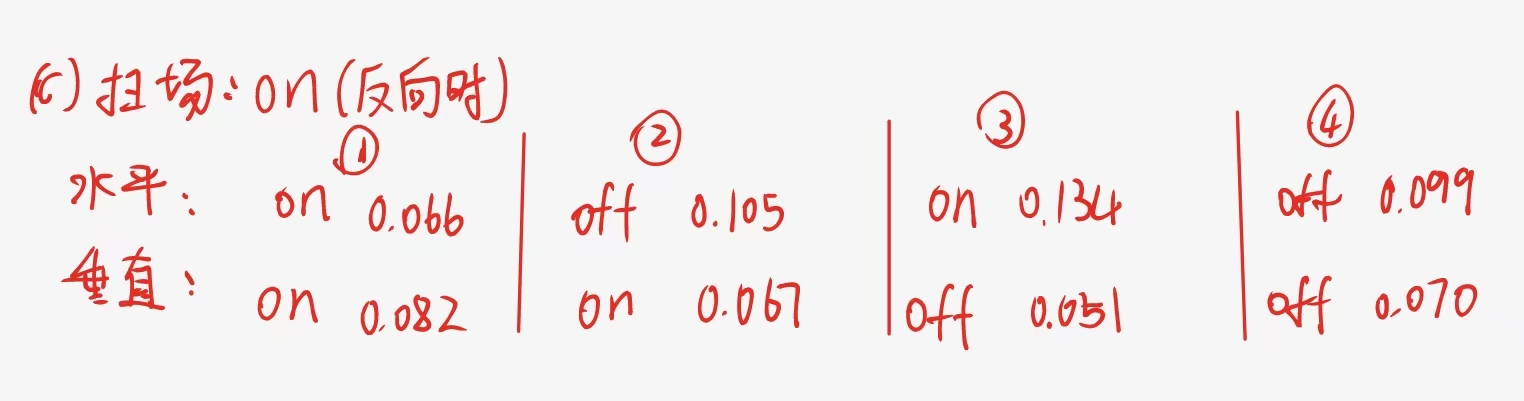 (c) 扫场：on (反向时)
① ② ③ ④
水平： on 0.066 off 0.105 on 0.134 off 0.099
垂直： on 0.082 on 0.067 off 0.051 off 0.070